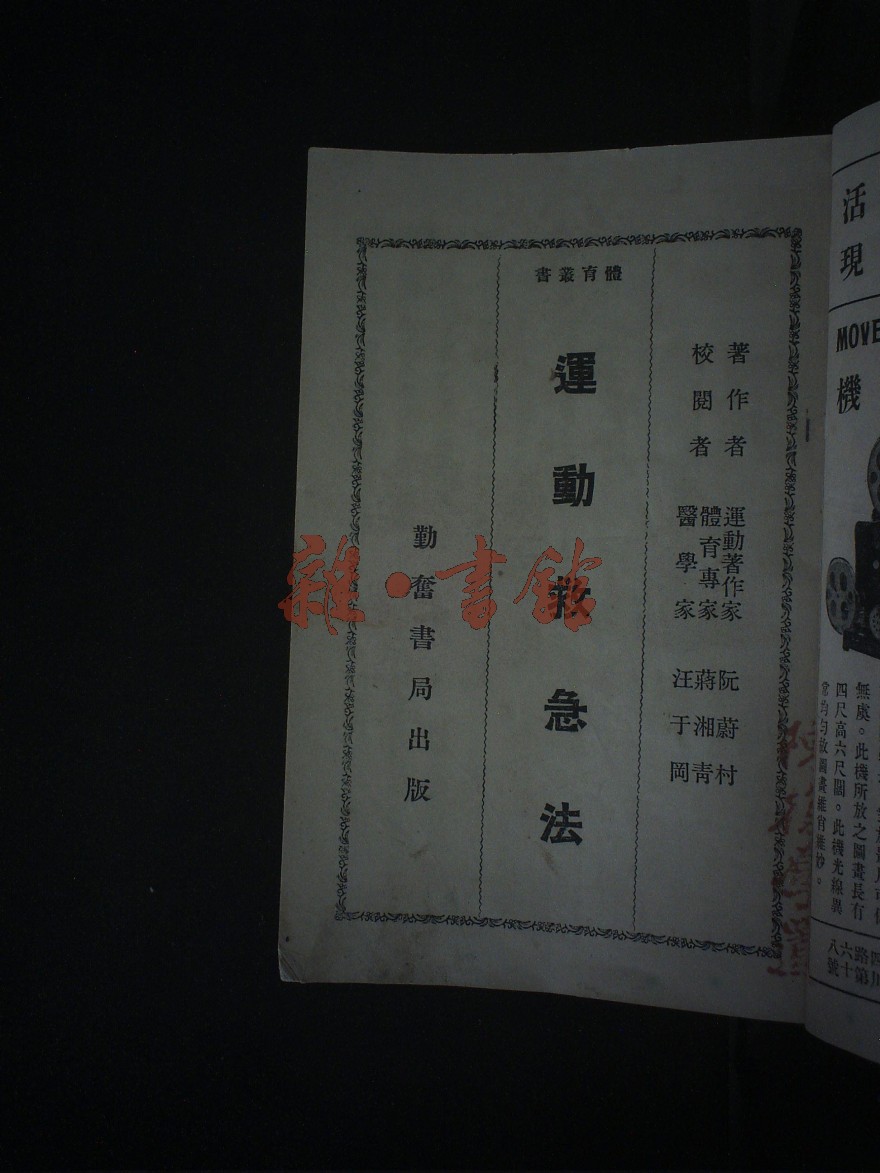 體育叢書
著作者 運動著作家 阮蔚村
校閱者 體育專家 蔣湘青
醫學家 汪于岡
運動救急法
勤奮書局出版
雜·書館
活現
MOVE
機
無處。此機所放之圖畫長有
四尺高六尺闊。此機光線異
常均勻放圖畫維肖維妙。
四川
路第
六十
八號